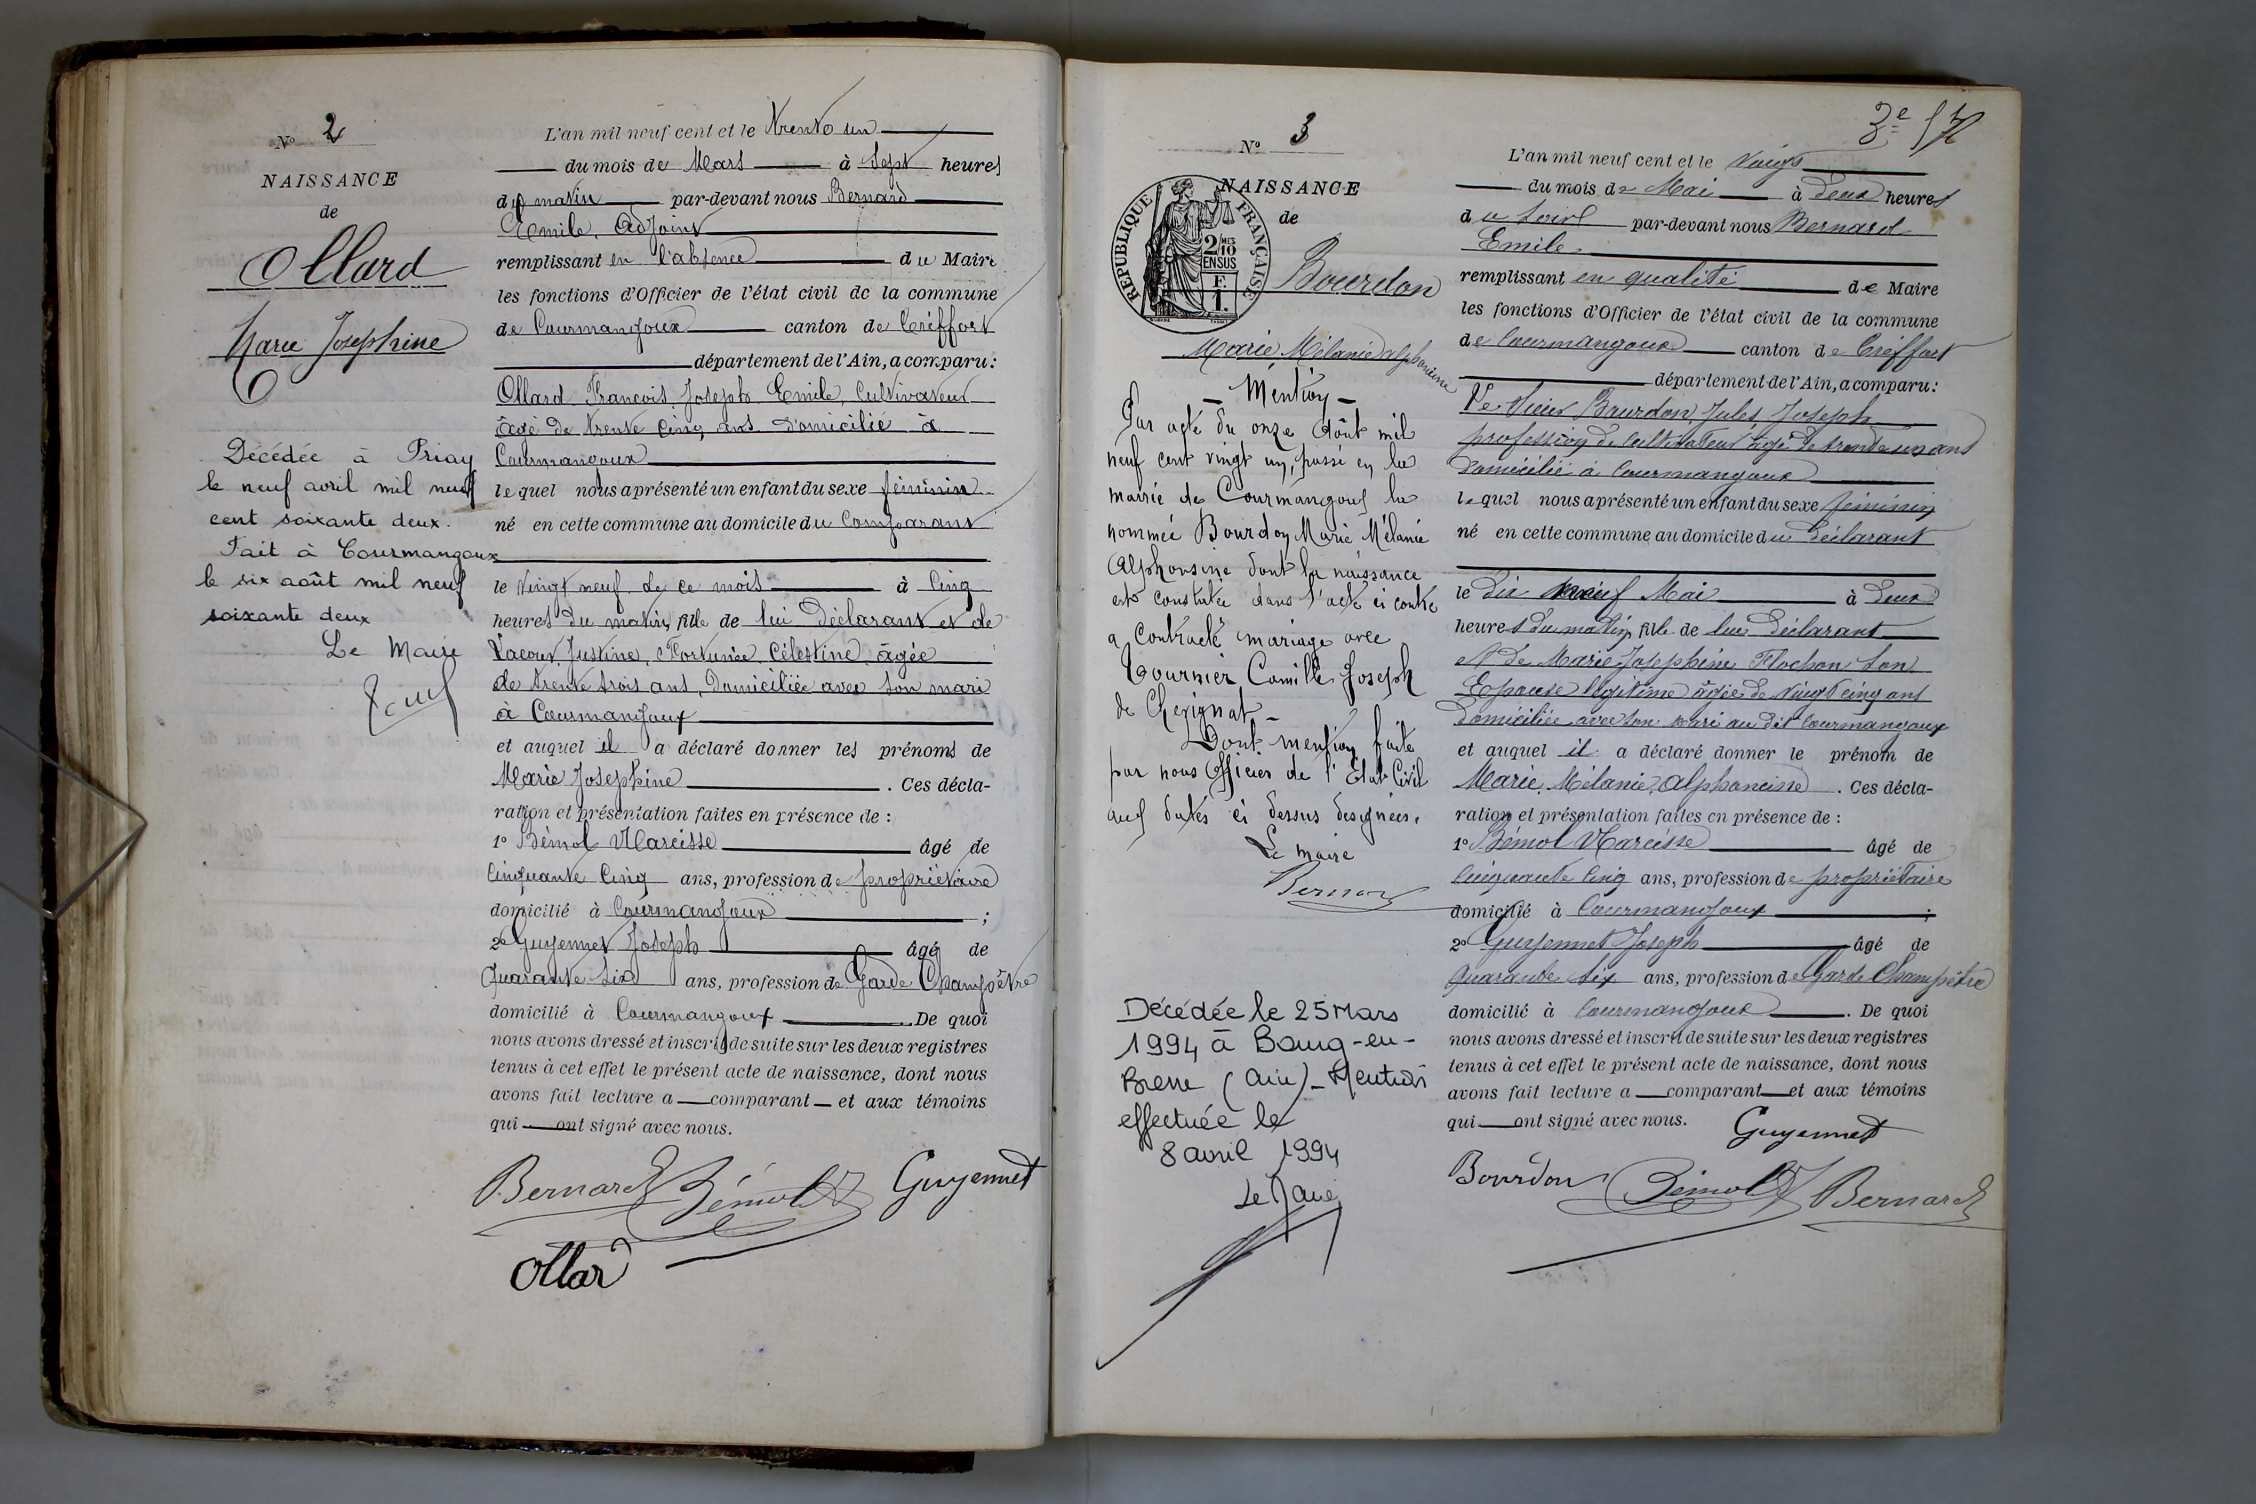 N° 2
NAISSANCE
de
Ollard
Marie Joséphine
Décédée à Priay
le neuf avril mil neuf
cent soixante deux.
Fait à Courmangoux
le six août mil neuf
soixante deux
Le Maire
L'an mil neuf cent et le trente un
du mois de Mars à Sept heures
du matin par-devant nous Bernard
Emile, Adjoint
remplissant en l'absence du Maire
les fonctions d'Officier de l'état civil de la commune
de Courmangoux canton de Créffort
département de l'Ain, a comparu:
Ollard François Joseph Emile, Cultivateur
âgé de trente cinq ans domicilié à
Courmangoux
lequel nous a présenté un enfant du sexe féminin
né en cette commune au domicile du Comparant
le vingt neuf de ce mois à cinq
heures du matin, fille de lui Déclarant et de
Lacour Justine, Fortunée Célestine âgée
de trente trois ans, Domiciliée avec son mari
à Courmangoux
et auquel il a déclaré donner les prénoms de
Marie Joséphine. Ces décla-
ration et présentation faites en présence de :
1° Bémol Narcisse âgé de
Cinquante Cinq ans, profession de propriétaire
domicilié à Courmangoux ;
2° Guyennet Joseph âgé de
Quarante six ans, profession de Garde Champêtre
domicilié à Courmangoux. De quoi
nous avons dressé et inscrit de suite sur les deux registres
tenus à cet effet le présent acte de naissance, dont nous
avons fait lecture a comparant et aux témoins
qui ont signé avec nous.
Bernard Bémol Guyennet
Ollard
3e
N° 3
NAISSANCE
de
RÉPUBLIQUE FRANÇAISE
2/10 MES
EN SUS
F.
1.
Bourdon
Marie Mélanie Alphonsine
- Mention -
Par acte du onze Août mil
neuf cent vingt un, passé en la
mairie de Courmangoux la
nommée Bourdon Marie Mélanie
Alphonsine dont la naissance
est constatée dans l'acte ci contre
a contracté mariage avec
Tournier Camille Joseph
de Chevignat -
Dont mention faite
par nous Officier de l'Etat Civil
aux dates ci dessus designées.
Le maire
Bernard
Décédée le 25 Mars
1994 à Bourg-en-
Bresse (Ain) - Mention
effectuée le
8 avril 1994
Le Maire
L'an mil neuf cent et le Vingt
du mois de Mai à deux heures
du soir par-devant nous Bernard
Emile
remplissant en qualité de Maire
les fonctions d'Officier de l'état civil de la commune
de Courmangoux canton de Créffort
département de l'Ain, a comparu:
Le Sieur Bourdon, Jules Joseph
profession de Cultivateur âgé de trente un ans
domicilié à Courmangoux
lequel nous a présenté un enfant du sexe féminin
né en cette commune au domicile du Déclarant
le Dix neuf Mai à deux
heures du matin, fille de lui Déclarant
et de Marie Josephine Flochon son
Epouse légitime âgée de Vingt cinq ans
Domiciliée avec son mari au dit Courmangoux
et auquel il a déclaré donner le prénom de
Marie, Mélanie, Alphonsine. Ces décla-
ration et présentation faites en présence de :
1° Bémol Narcisse âgé de
Cinquante Cinq ans, profession de propriétaire
domicilié à Courmangoux ;
2° Guyennet Joseph âgé de
Quarante six ans, profession de Garde Champêtre
domicilié à Courmangoux. De quoi
nous avons dressé et inscrit de suite sur les deux registres
tenus à cet effet le présent acte de naissance, dont nous
avons fait lecture a comparant et aux témoins
qui ont signé avec nous.
Guyennet
Bourdon Bémol Bernard